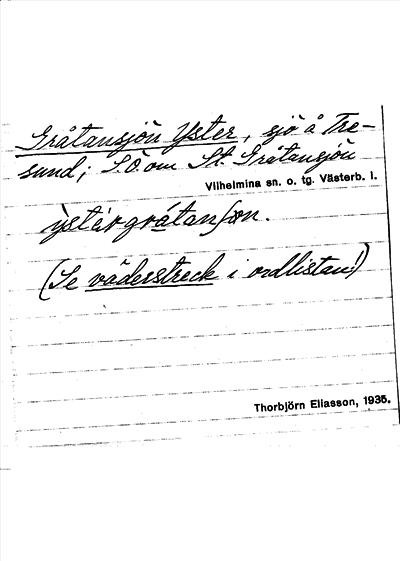 Gråtansjön Yster, sjö å Tre-
sund; S.O. om St. Gråtansjön
Vilhelmina sn. o. tg. Västerb. l.
(Se väderstreck i ordlistan!)
Thorbjörn Eliasson, 1935.